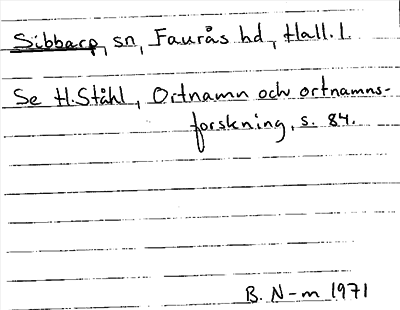 Sibbarp, sn, Faurås hd, Hall. l.
Se H. Ståhl, Ortnamn och ortnamns-
forskning, s. 84.
B. N-m 1971